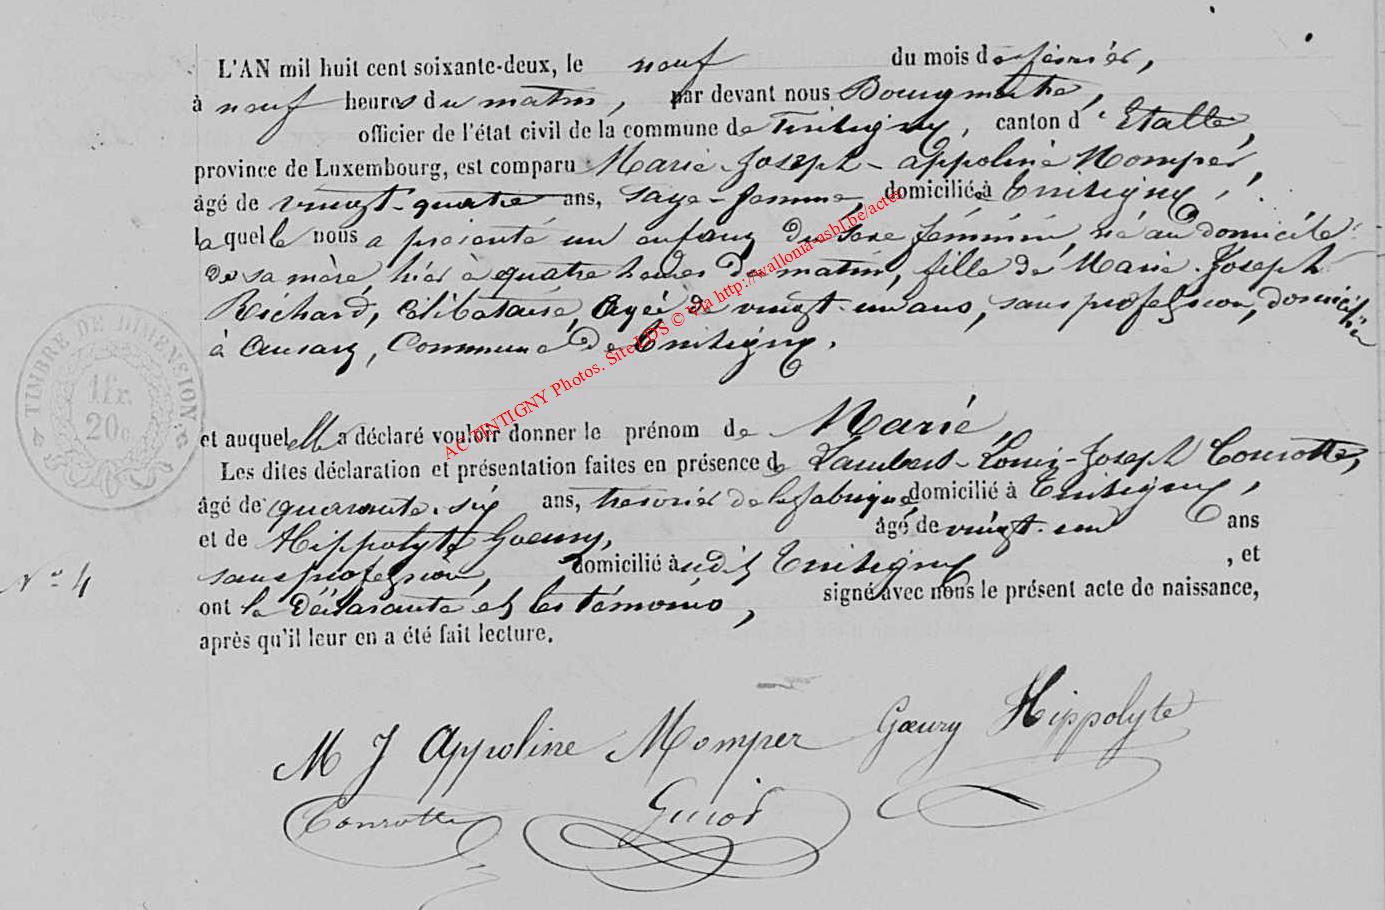 L'AN mil huit cent soixante-deux, le neuf du mois de février,
à neuf heures du matin, par devant nous Bourgmestre,
officier de l'état civil de la commune de Tintigny, canton d'Etalle,
province de Luxembourg, est comparu Marie-Joseph-appoline Momper,
âgé de vingt-quatre ans, sage-femme, domiciliée à Tintigny,
laquelle nous a présenté un enfant du sexe féminin, né au domicile
de sa mère, hier à quatre heures du matin, fille de Marie-Joseph
Richard, célibataire, agée de vingt-un ans, sans profession, domiciliée
à Ansart, Commune de Tintigny.
et auquel elle a déclaré vouloir donner le prénom de Marie,
Les dites déclaration et présentation faites en présence de Lambert-Louis-Joseph Conrotte,
âgé de quarante-six ans, trésorier de la fabrique, domicilié à Tintigny,
et de Hippolyte Goeury, âgé de vingt-un ans
sans profession, domicilié à udit Tintigny, et
N° 4
ont la déclarante et les témoins, signé avec nous le présent acte de naissance,
après qu'il leur en a été fait lecture.
M J Appoline Momper Goeury Hippolyte
Conrotte Guiot
TIMBRE DE DIMENSION.
1 fr.
20 c
AC TINTIGNY Photos. Site LDS © via http://wallonia-asbl.be/actes